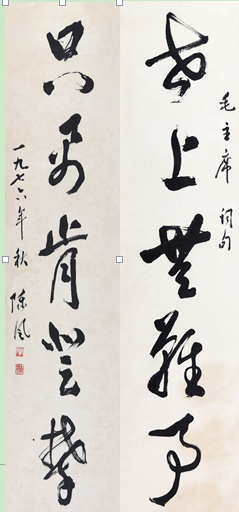 毛主席词句
世上無難事
只要肯登攀
一九七六年秋
陈风